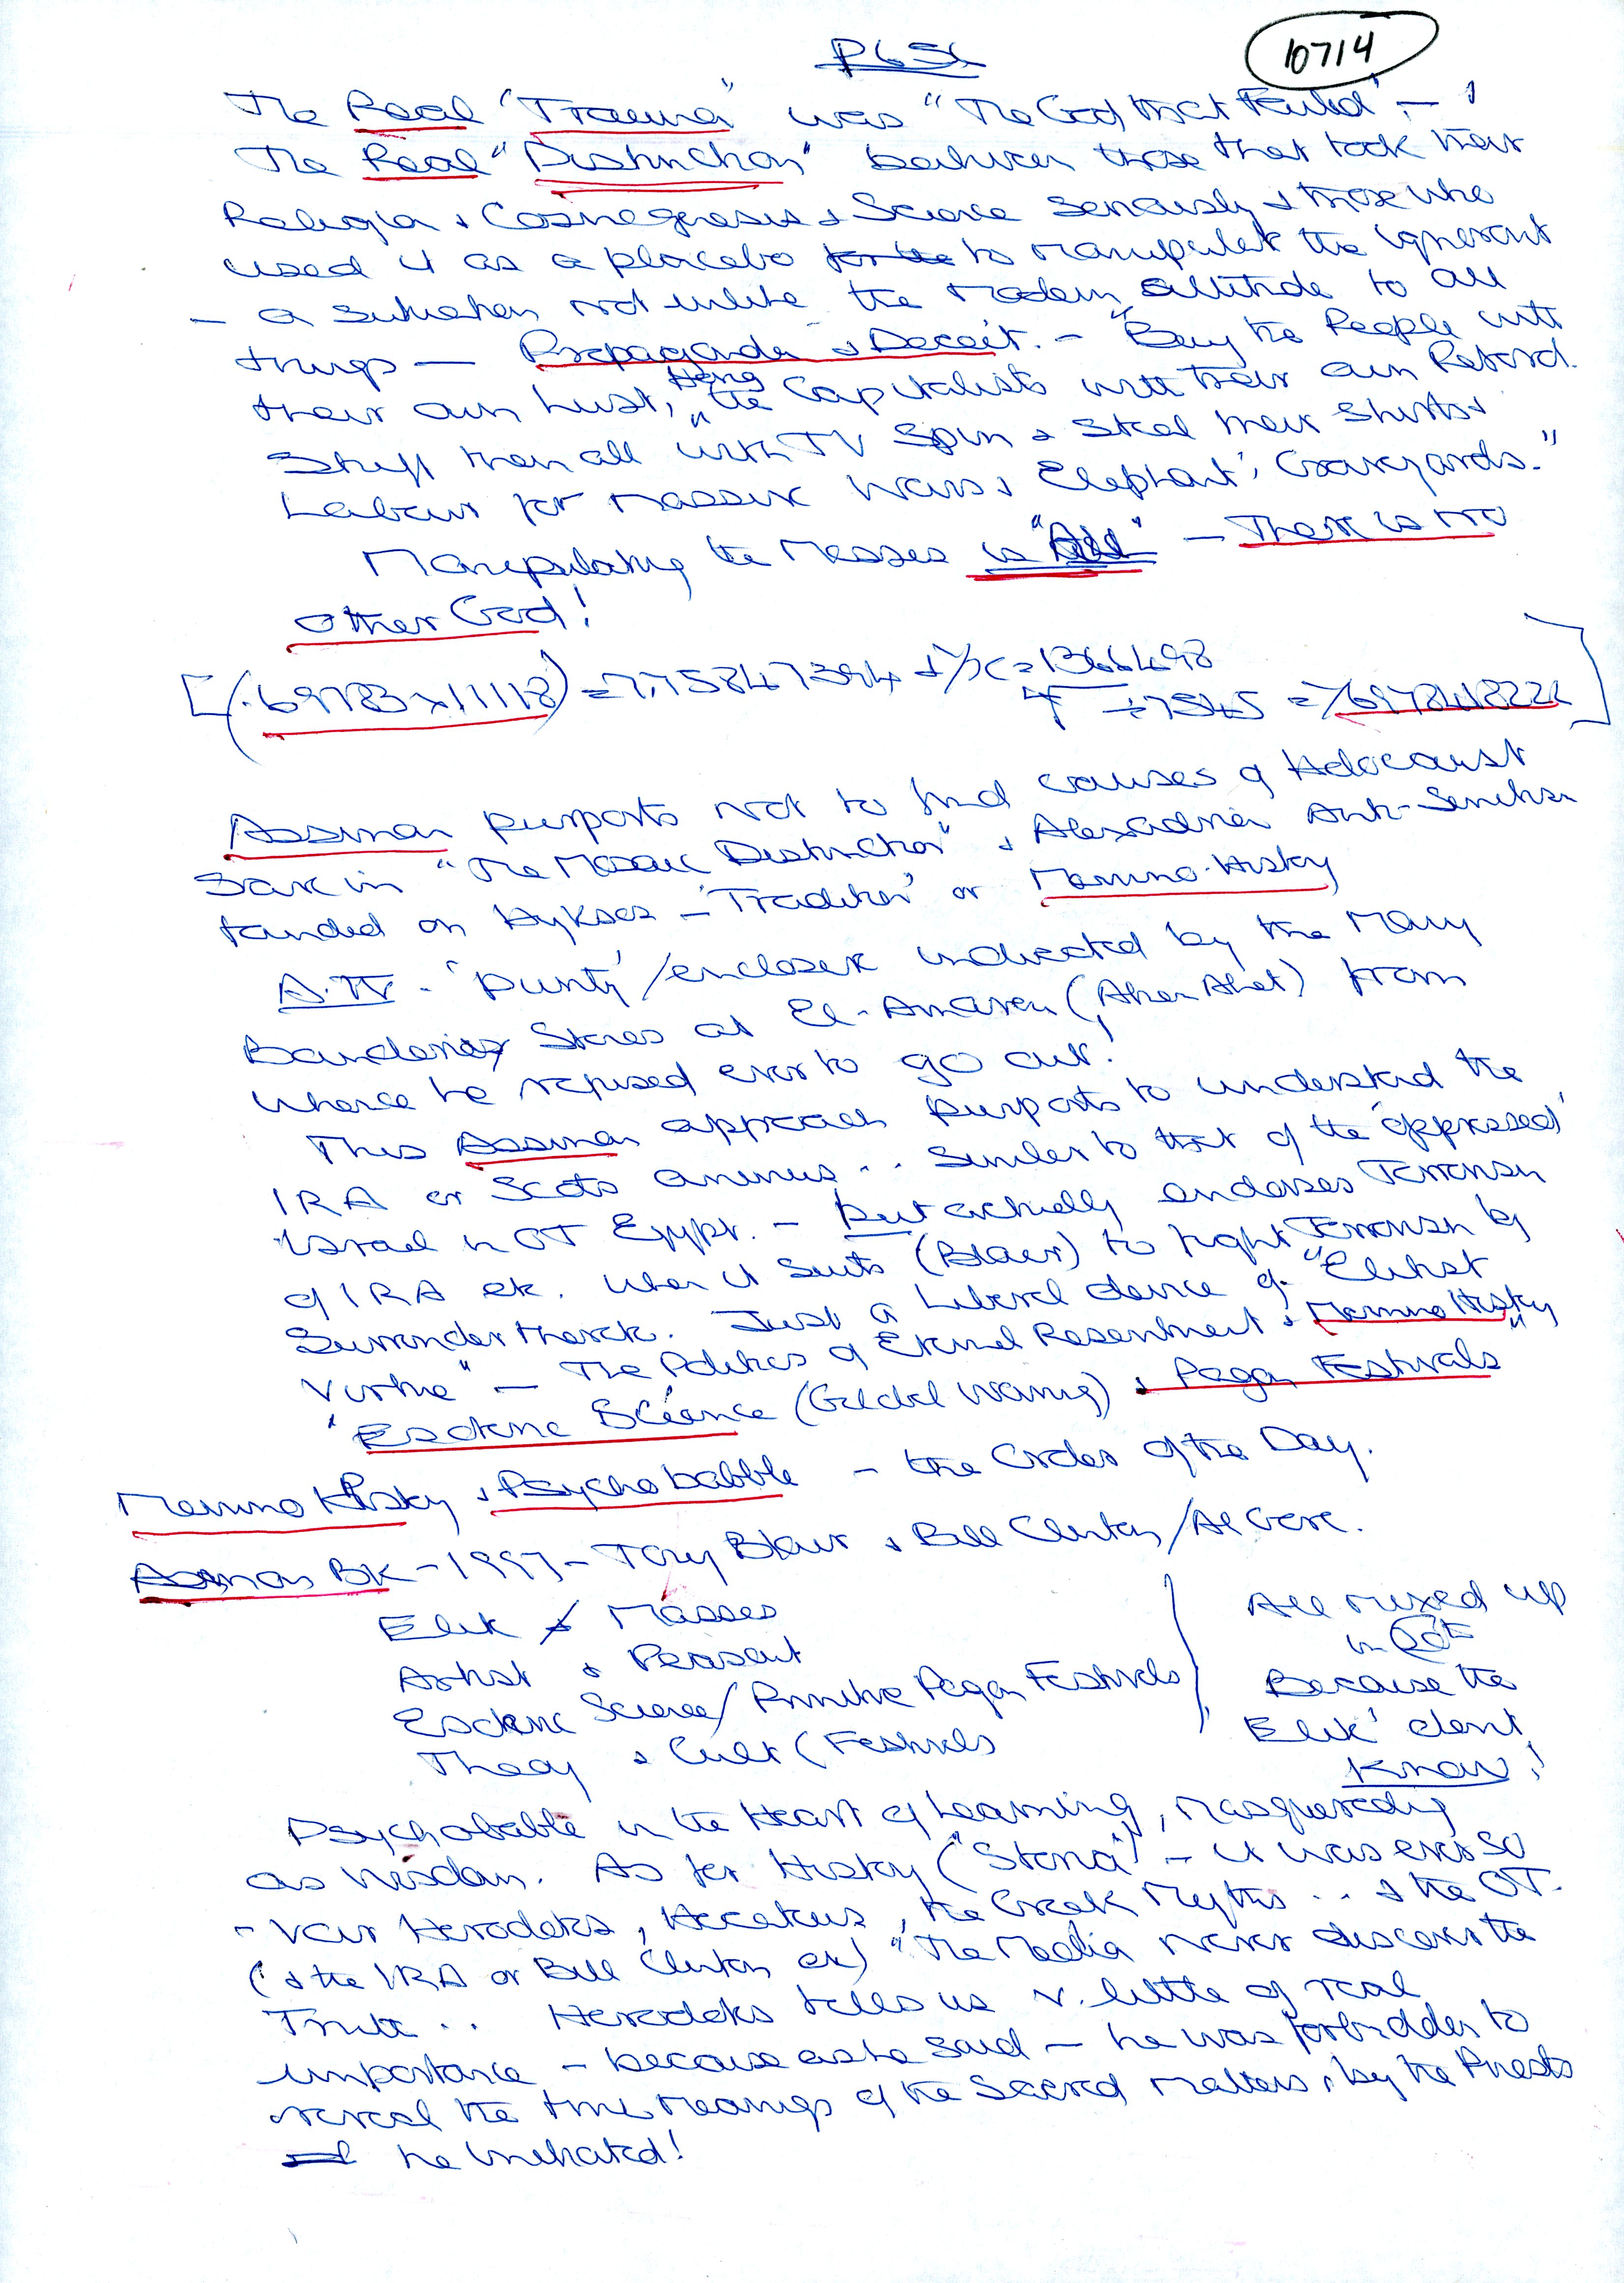 10714
The Real "Trauma" was "The God that Failed" –
The Real "Distinction" between those that took their
Religion & Cosmogenesis & Science seriously & those who
used it as a placebo to manipulate the ignorant
– a situation not unlike the Modern attitude to all
things — Propaganda & Deceit. – "Buy the People with
their own Lust, Hang the Capitalists with their own Petard.
Stuff them all with TV Spin & Steal their Shirts &
Labour for Massive Wars & Elephant's Graveyards."
Manipulating the Masses is "All" – There is no
other God!
[(.69783 x 11118) = 7.75847394
Assman purports not to find causes of Holocaust
in "The Mosaic Distinction" & Alexandrian Anti-Semitism
founded on Hyksos – 'Tradition' or Mnemo-History
A.IV – 'purity'/enclosure indicated by the Many
Boundary Stones at El-Amarna (Akhen Ahet) from
whence he refused ever to go out!
This Assman approach purports to understand the
IRA or Scots animus .. similar to that of the 'oppressed'
Israel in OT Egypt. – but actually endorses Terrorism
of IRA etc. when it Suits (Blair) to fight Terrorism by
Surrender thereto. Just a Liberal device of "Elitist
Virtue" – The Politics of Eternal Resentment & Mnemo History"
'Esoteric Science (Global Warming) & Pagan Festivals
Mnemo History & Psychobabble – the Order of the Day.
Assman BK – 1997 – Tony Blair & Bill Clinton/Al Gore.
Elite & Masses
Artist & Peasant
Esoteric Science/Primitive Pagan Festivals
Theory & Cult (Festivals
All mixed up
in
Because the
Elite' dont
Know!
Psychobabble in the Heart of Learning, masquerading
as Wisdom. As for History ("Storia") – it was ever so
– Herodotus, Hecateus, the Greek Myths .. & the OT.
(& the IRA or Bill Clinton etc) "The Media never discern the
Truth .. Herodotus tells us v. little of real
importance – because as he said – he was forbidden to
reveal the true meanings of the Sacred Matters, by the Priests
he initiated!